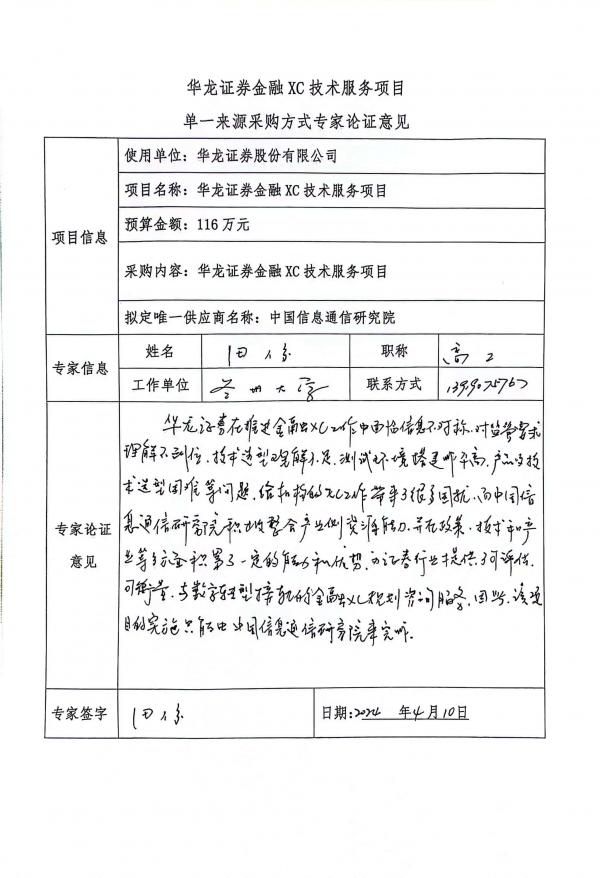 华龙证券金融XC技术服务项目
单一来源采购方式专家论证意见
项目信息
使用单位：华龙证券股份有限公司
项目名称：华龙证券金融XC技术服务项目
预算金额：116万元
采购内容：华龙证券金融XC技术服务项目
拟定唯一供应商名称：中国信息通信研究院
专家信息
姓名
职称 高工
工作单位 兰州大学
联系方式
专家论证意见
华龙证券在推进金融XC工作中面临信息不对称、对监管要求
理解不到位、技术选型理解不足、测试环境搭建成本高、产品与技
术选型困难等问题，给机构的XC工作带来了很多困扰，而中国信
息通信研究院积极整合产业侧资源能力，并在政策、技术和产
业等方面积累了一定的能力和优势，为证券行业提供了可评估、
可衡量、与数字转型接轨的金融XC规划咨询服务，因此，该项
目的实施只能由中国信息通信研究院来完成。
专家签字
日期：2024 年4月10日